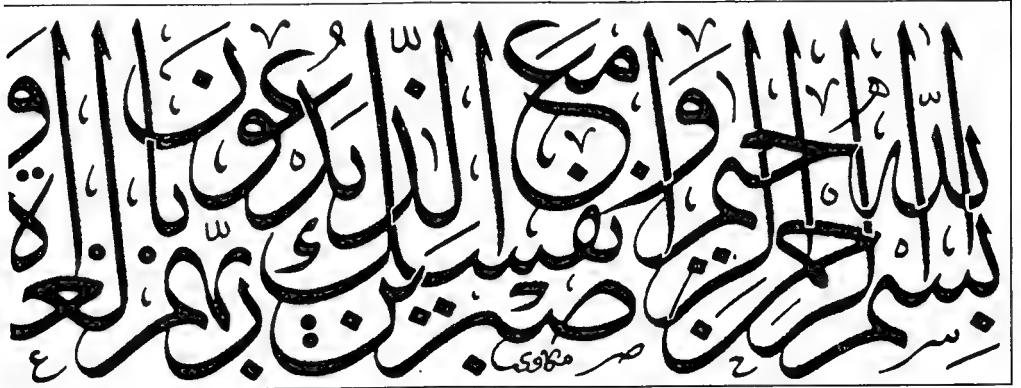 بسم الله الرحمن الرحيم واصبر نفسك مع الذين يدعون ربهم بالغداة و
مكاوي